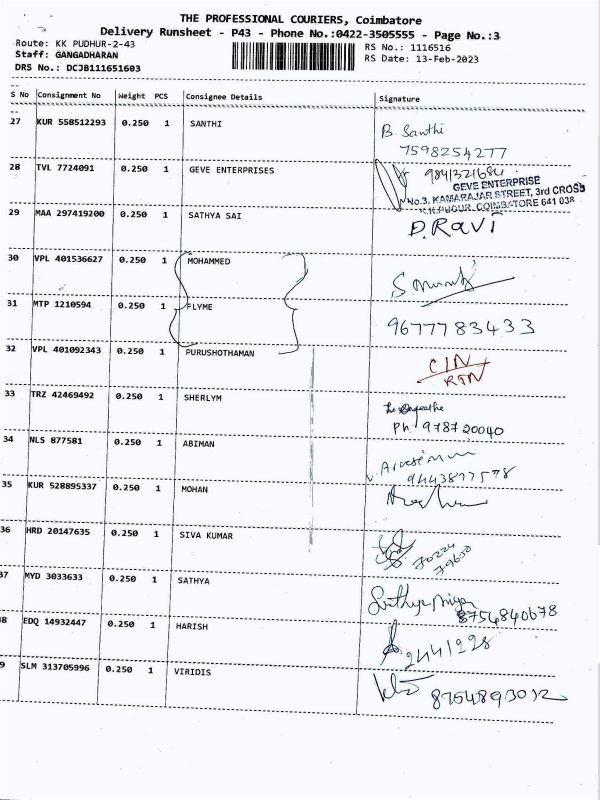 THE PROFESSIONAL COURIERS, Coimbatore
Delivery Runsheet - P43 - Phone No.:0422-3505555 - Page No.:3
Route: KK PUDHUR-2-43
Staff: GANGADHARAN
DRS No.: DCJB111651603
RS No.: 1116516
RS Date: 13-Feb-2023
S No Consignment No Weight PCS Consignee Details Signature
27 KUR 558512293 0.250 1 SANTHI B. Santhi
7598254277
28 TVL 7724091 0.250 1 GEVE ENTERPRISES 9841321684
GEVE ENTERPRISE
No.3, KAMARAJAR STREET, 3rd CROSS
K.K.PUDUR, COIMBATORE 641 038
29 MAA 297419200 0.250 1 SATHYA SAI D.RaVi
30 VPL 401536627 0.250 1 MOHAMMED
31 MTP 1210594 0.250 1 FLYME 9677783433
32 VPL 401092343 0.250 1 PURUSHOTHAMAN CIN
RTN
33 TRZ 42469492 0.250 1 SHERLYM
Ph. 978720040
34 NLS 877581 0.250 1 ABIMAN
9443897578
35 KUR 528895337 0.250 1 MOHAN
36 HRD 20147635 0.250 1 SIVA KUMAR 70224
79600
37 MYD 3033633 0.250 1 SATHYA Sathyapriya
8754840678
8 EDQ 14932447 0.250 1 HARISH 2441228
9 SLM 313705996 0.250 1 VIRIDIS 8754893012